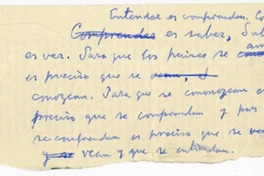 Entender es comprender. Co
Comprender es saber, Sab
es ver. Para que los países se am
es preciso que se vean, y
conozcan. Para que se conozcan es
preciso que se comprendan y para
se comprendan es preciso que se vean
y se vean y que se entiendan.